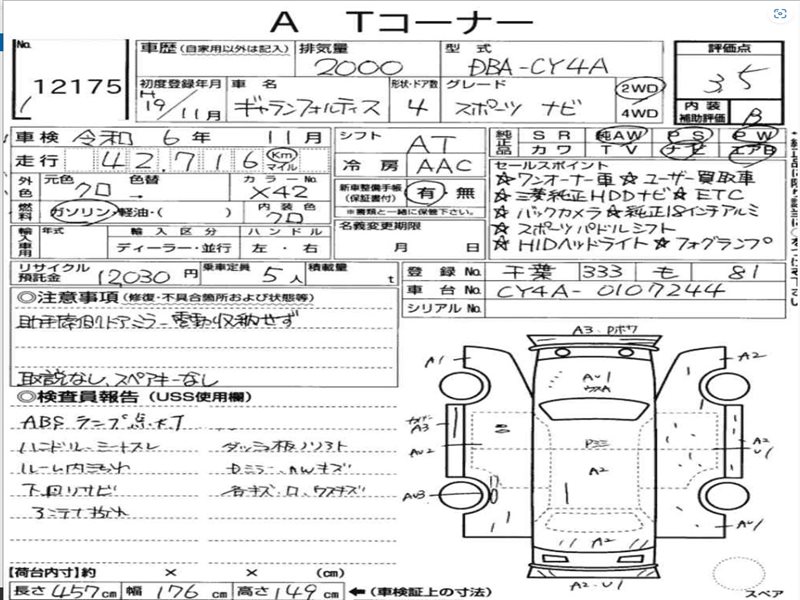 A Tコーナー
No. 12175
車歴 (自家用以外は記入) 排気量 2000 型式 DBA-CY4A 評価点 3.5
初度登録年月 H19/11月 車名 ギャランフォルティス 形状・ドア数 4 グレード スポーツ ナビ 2WD 4WD 内装補助評価 B
車検 令和 6年 11月 シフト AT 純正品 SR 純AW PS PW
カワ TV ナビ エアB
走行 42,716 Km マイル 冷房 AAC
外色 元色 クロ 色替 カラーNo. X42 新車整備手帳 (保証書付) 有・無
※書類と一緒に保管下さい。
燃料 ガソリン・軽油・( ) 内装色 クロ
名義変更期限 月 日
輸入車用 年式 輸入区分 ディーラー・並行 ハンドル 左・右
セールスポイント
☆ワンオーナー車☆ユーザー買取車
☆三菱純正HDDナビ☆ETC
☆バックカメラ☆純正18インチアルミ
☆スポーツパドルシフト
☆HIDヘッドライト☆フォグランプ
リサイクル預託金 12,030円 乗車定員 5人 積載量 t
登録No. 千葉 333 も 81
車台No. CY4A-0107244
シリアルNo.
◎注意事項 (修復・不具合箇所および状態等)
助手席側ドアミラー電動収納せず
取説なし、スペアキーなし
◎検査員報告 (USS使用欄)
ABSランプ点灯
ハンドル・シートスレ ダッシュ板ソリフト
ルーム内汚れ Dミラー、AWキズ
下回りサビ 各キズ・ロ、ウスキズ
A3・Pボワ
A1
A2
AU1
ウスA
A3
AU2
AU3
Pミミ
A2
A2
U1
A2
AU1
A2・U1
スペア
【荷台内寸】約 × × (cm)
長さ 457cm 幅 176cm 高さ 149cm ←(車検証上の寸法)